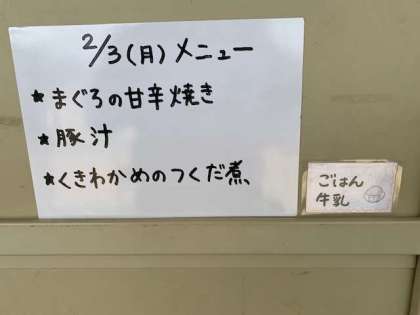 2/3(月)メニュー
★まぐろの甘辛焼き
★豚汁
★くきわかめのつくだ煮
ごはん
牛乳